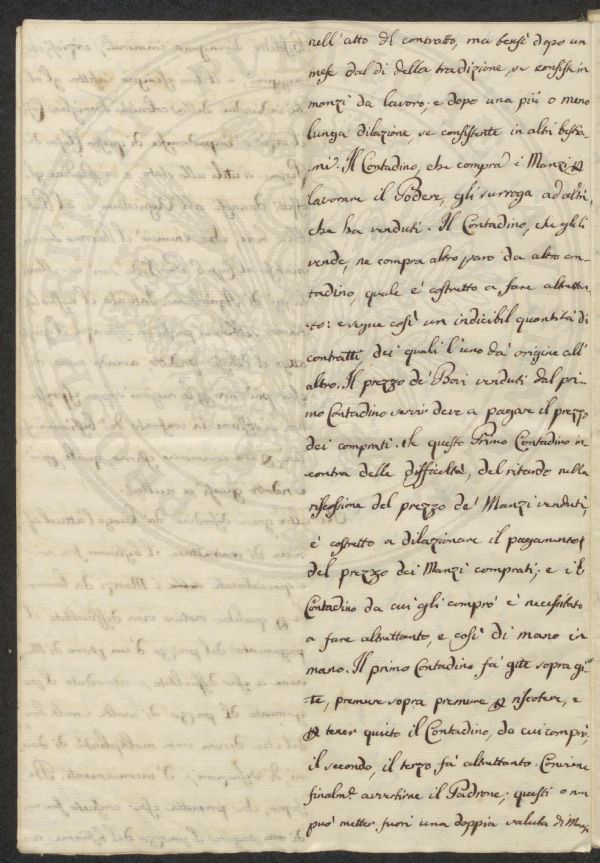 nell'atto del contratto, ma bensì dopo un
mese dal dì della tradizione, se consiste in
manzi da lavoro; e dopo una più o meno
lunga dilazione, se consistente in altri bestia-
mi. Il Contadino, che compra i Manzi p
lavorare il Podere, gli surroga ad altri,
che ha venduti. Il Contadino, che gli
vende, ne compra altro paro da altro con-
tadino, quale è costretto a fare altrettan-
to: e segue così un indicibil quantità di
contratti, dei quali l'uno dà origine all'
altro. Il prezzo de' Bovi venduti dal pri-
mo Contadino servir deve a pagare il prezzo
dei comprati. Se questo Primo Contadino in-
contra delle difficoltà, del ritardo nella
riscossione del prezzo de' Manzi venduti,
è costretto a dilazionare il pagamento
del prezzo dei Manzi comprati; e il
Contadino da cui gli comprò è necessitato
a fare altrettanto, e così di mano in
mano. Il primo Contadino fa gite sopra gi-
te, premure sopra premure p riscotere, e
p tener quieto il Contadino, da cui comprò;
il secondo, il terzo fa altrettanto. Conviene
finalmte avvertirne il Padrone; questi o non
può metter fuori una doppia valuta di Manzi